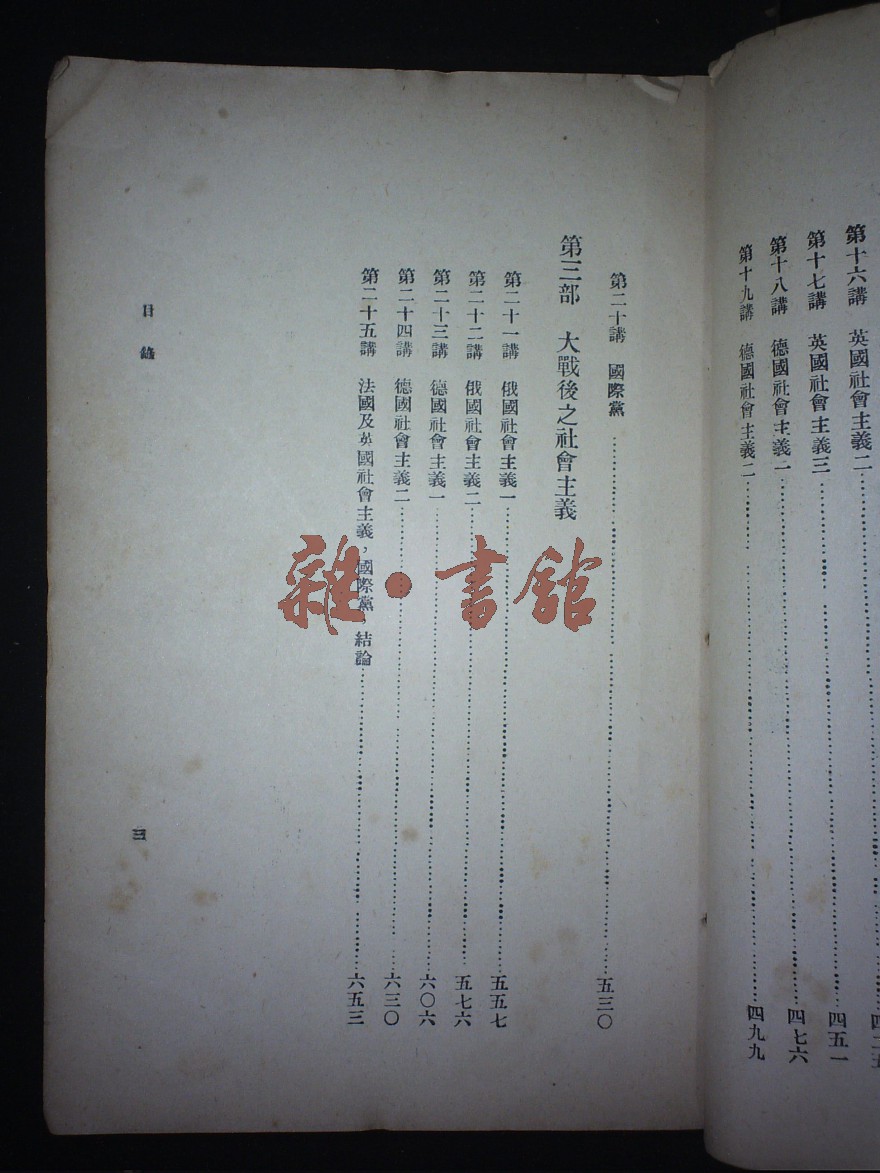 第十六講　英國社會主義二
第十七講　英國社會主義三……四五一
第十八講　德國社會主義一……四七六
第十九講　德國社會主義二……四九九
第二十講　國際黨……五三〇
第三部　大戰後之社會主義
第二十一講　俄國社會主義一……五五七
第二十二講　俄國社會主義二……五七六
第二十三講　德國社會主義一……六〇六
第二十四講　德國社會主義二……六三〇
第二十五講　法國及英國社會主義，國際黨，結論……六五三
目錄
三
雜·書館